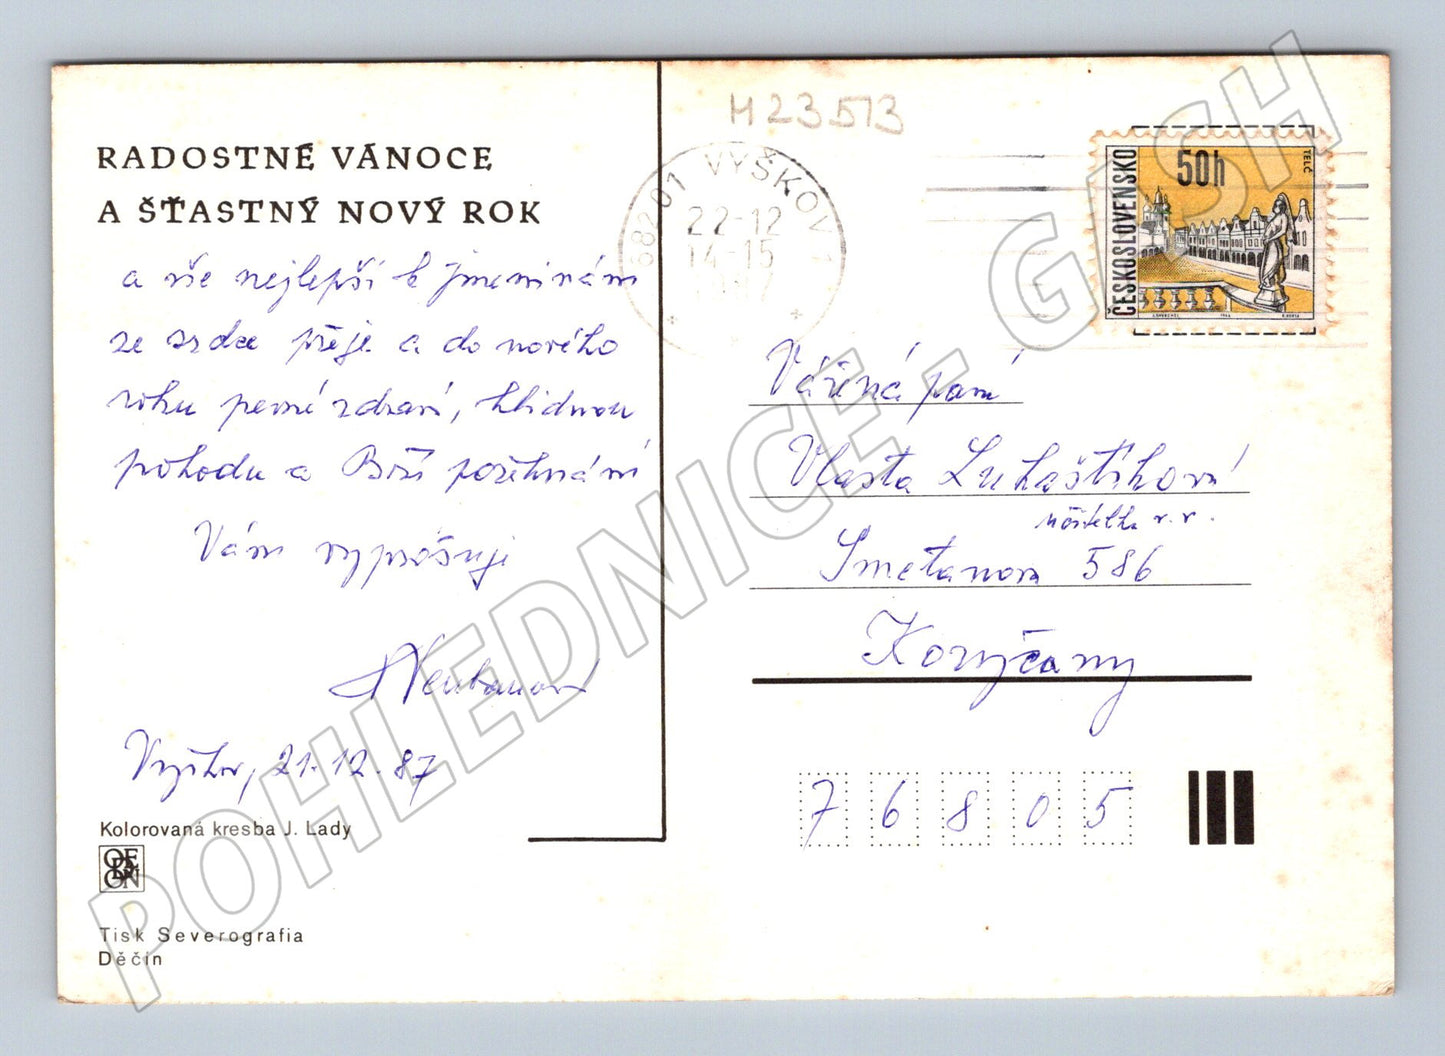 RADOSTNÉ VÁNOCE
A ŠŤASTNÝ NOVÝ ROK
a vše nejlepší k jmeninám
ze srdce přeje a do nového
roku pevné zdraví, klidnou
pohodu a Boží požehnání
Vám vyprošuje
Vyškov, 21.12.87
Kolorovaná kresba J. Lady
ODEON
Tisk Severografia
Děčín
M23513
682 01 VYŠKOV 1
22-12
14-15
ČESKOSLOVENSKO
50h
TELČ
Vážená paní
Vlasta Lukaštíková
učitelka v. v.
Smetanova 586
Koryčany
76805
POHLEDNICE - GASH